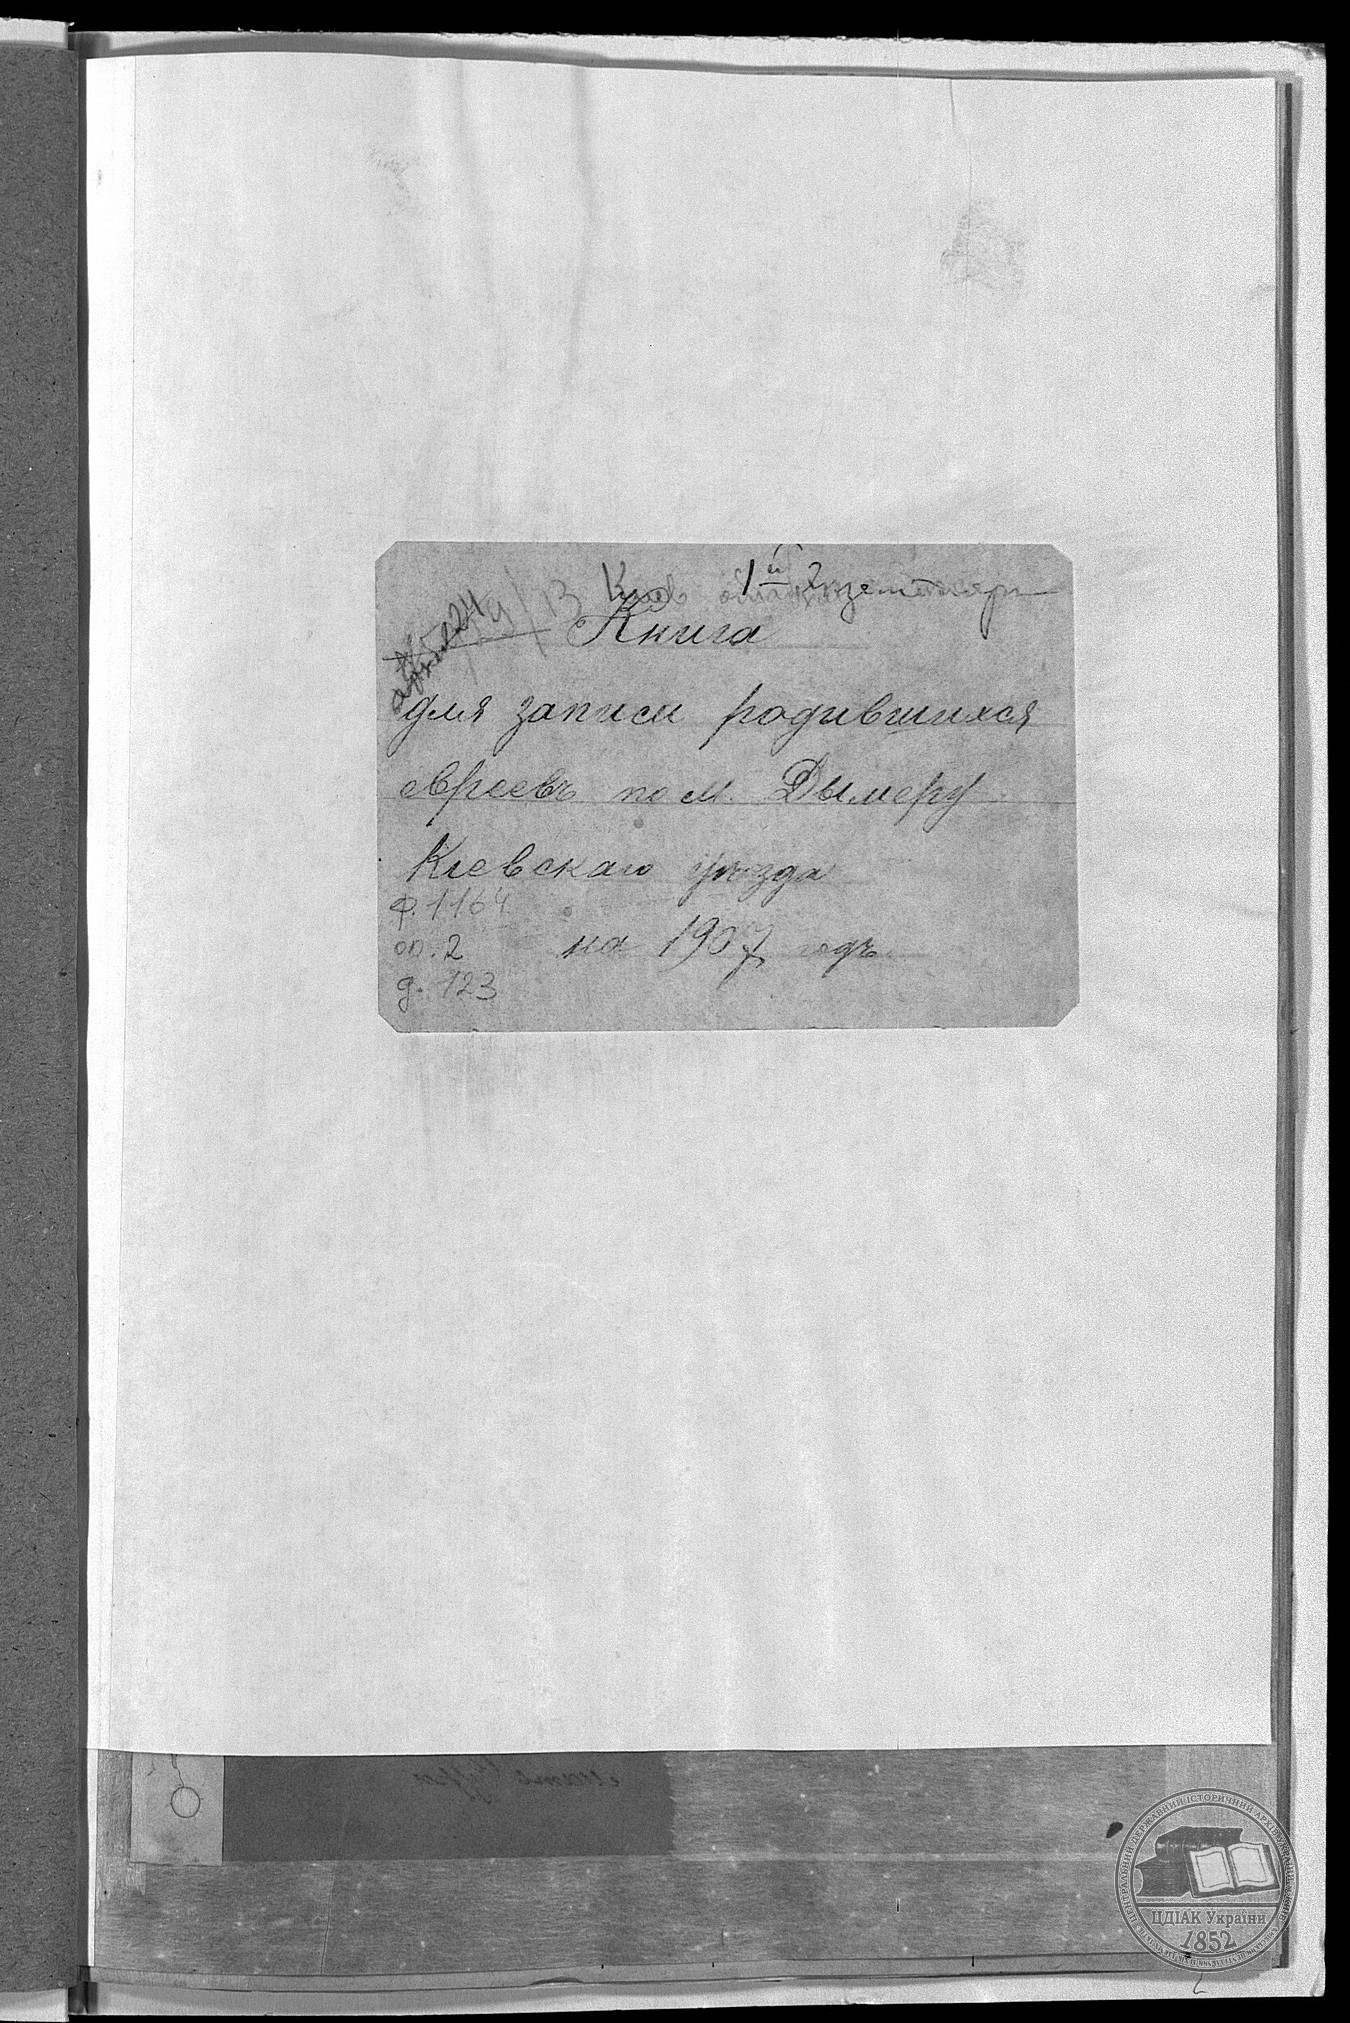 1 й 2 экземпляр
Книга
для записи родившихся
евреевъ по м. Дымеру
Кіевскаго уѣзда
на 1907 годъ
ф. 1164
оп. 2
д. 123
ЦЕНТРАЛЬНИЙ ДЕРЖАВНИЙ ІСТОРИЧНИЙ АРХІВ УКРАЇНИ
ЦДІАК України
1852